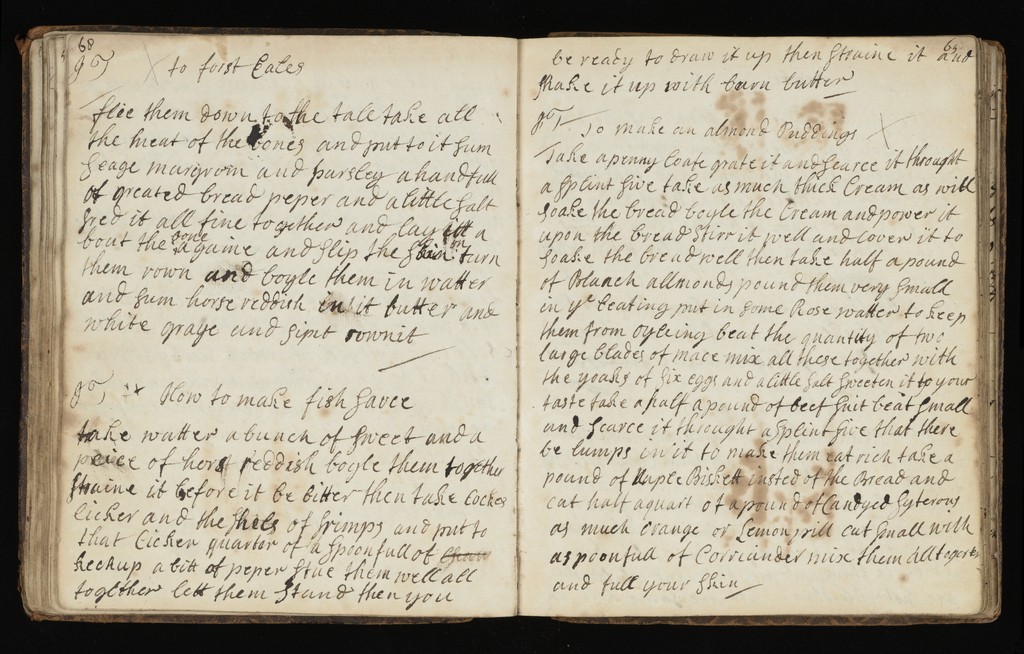 68
to forst Eales
flee them down to the tale take all
the meat of the bones and put to it sum
seage margrom and parsley a handfull
of greated bread peper and a little salt
sred it all fine together and lay itt a
bout the bone agame and slip the skin on turn
them rown and boyle them in watter
and sum horse reddish in it butter and
white graye and sipit rownit
How to make fish savce
take watter a bunch of sweet and a
peice of horst reddish boyle them together
straine it before it be bitter then take Cockes
licker and the shels of srimps and put to
that Licker quarter of a spoonfull of
kechup a bitt of peper stue them well all
together lett them stand then you
69
be ready to draw it up then straine it and
shake it up with burn butter
To make an almond Puddings
Take a penny loafe grate it and searce it throught
a splint sive take as much thick Cream as will
soake the bread boyle the Cream and power it
upon the bread stirr it well and Cover it to
soake the bread well then take half a pound
of Blanch allmonds pound them very small
in ye beating put in some Rose watter to keep
them from oyleing beat the quantity of two
large blades of mace mix all these together with
the yoaks of six eggs and a little salt sweeten it to your
taste take a half a pound of beef suit beat small
and searce it throught a splint sive that there
be lumps in it to make them eat rich take a
pound of Naple Biskett insted of the Bread and
eat half a quart of a pound of Candyed Syterons
as much orange or Lemon pill cut small with
a spoonfull of Corriander mix them all togerter
and full your skin